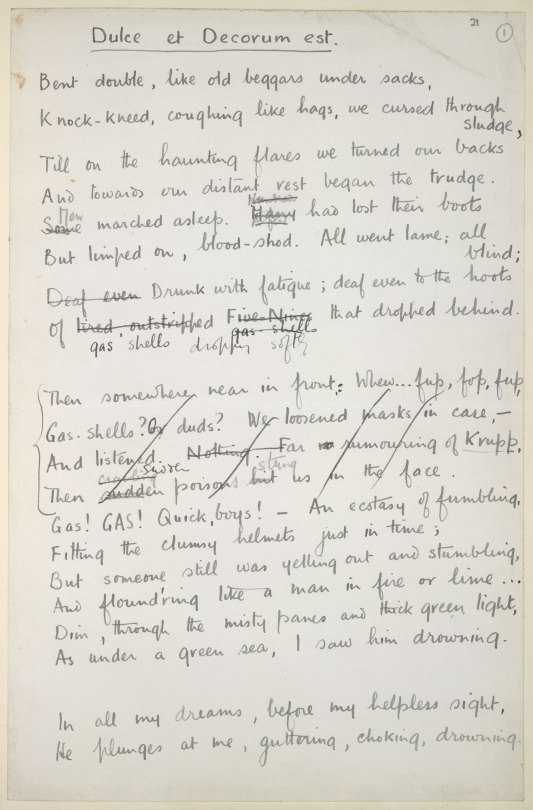 21
1
Dulce et Decorum est.
Bent double, like old beggars under sacks,
Knock-kneed, coughing like hags, we cursed through
sludge,
Till on the haunting flares we turned our backs
And towards our distant rest began the trudge.
Men
Some marched asleep. Many had lost their boots
But limped on, blood-shod. All went lame; all
blind;
Deaf even Drunk with fatigue; deaf even to the hoots
Of tired, outstripped Five-Nines that dropped behind.
gas-shells
gas shells dropping softly
Then somewhere near in front: Whew... fup, fop, fup,
Gas-shells? Or duds? We loosened masks in case, –
And listened. Nothing. Far rumouring of Krupp.
Sudden stung
Then sudden poisons hit us in the face.
Gas! GAS! Quick, boys! – An ecstasy of fumbling,
Fitting the clumsy helmets just in time;
But someone still was yelling out and stumbling,
And flound'ring like a man in fire or lime...
Dim, through the misty panes and thick green light,
As under a green sea, I saw him drowning.
In all my dreams, before my helpless sight,
He plunges at me, guttering, choking, drowning.